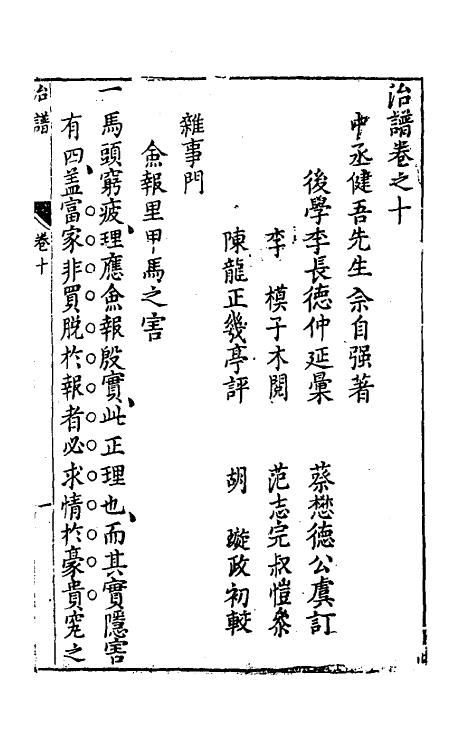 治譜卷之十
中丞健吾先生佘自强著
後學李長德仲延彙　蔡懋德公虞訂
李　模子木閱　范志完叔愷叅
陳龍正幾亭評　胡　璇政初較
雜事門
僉報里甲馬之害
一馬頭窮疲、理應僉報殷實、此正理也、而其實隱害
有四、盖富家非買脱於報者必求情於豪貴、究之
治譜　卷十　一